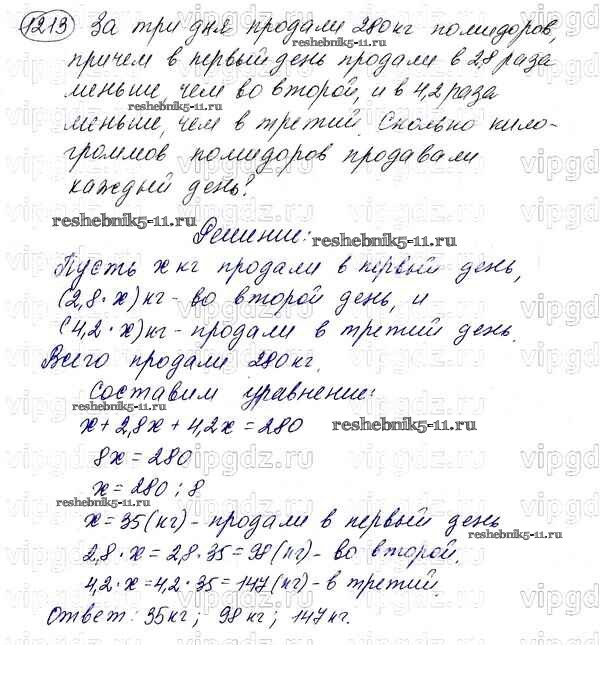 1213 За три дня продали 280кг помидоров,
причем в первый день продали в 2,8 раза
меньше, чем во второй, и в 4,2 раза
reshebnik5-11.ru
меньше, чем в третий. Сколько кило-
граммов помидоров продавали
каждый день?
reshebnik5-11.ru
Решение:
reshebnik5-11.ru
Пусть x кг продали в первый день,
(2,8·x) кг - во второй день, и
(4,2·x) кг - продали в третий день.
Всего продали 280кг.
Составим уравнение:
x+2,8x+4,2x=280
reshebnik5-11.ru
8x=280
x=280:8
reshebnik5-11.ru
x=35(кг)-продали в первый день
reshebnik5-11.ru
2,8·x=2,8·35=98(кг)-во второй.
4,2·x=4,2·35=147(кг)-в третий.
Ответ: 35кг; 98кг; 147кг.
vipgdz.ru